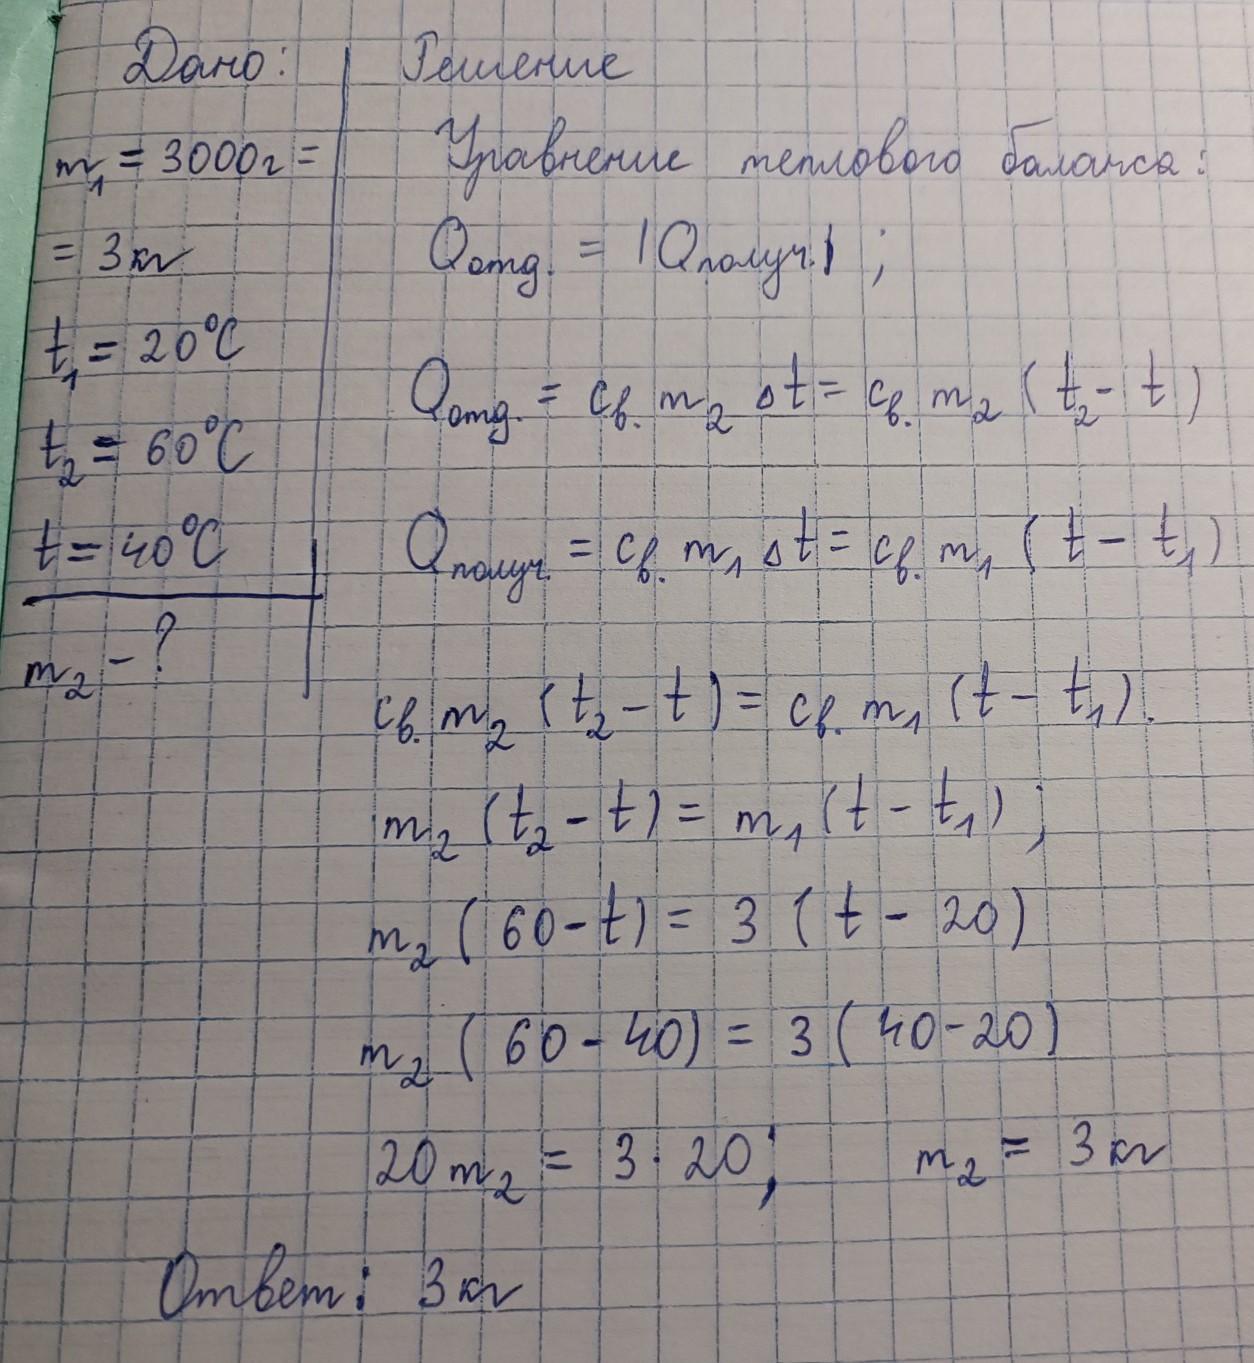 Дано:
m₁ = 3000г =
= 3кг
t₁ = 20°C
t₂ = 60°C
t = 40°C
m₂ - ?
Решение
Уравнение теплового баланса:
Qотд. = |Qполуч.| ;
Qотд. = cв. m₂ Δt = cв. m₂ (t₂ - t)
Qполуч. = cв. m₁ Δt = cв. m₁ (t - t₁)
cв. m₂ (t₂ - t) = cв. m₁ (t - t₁).
m₂ (t₂ - t) = m₁ (t - t₁) ;
m₂ (60 - t) = 3 (t - 20)
m₂ (60 - 40) = 3 (40 - 20)
20 m₂ = 3 · 20 ; m₂ = 3 кг
Ответ: 3 кг